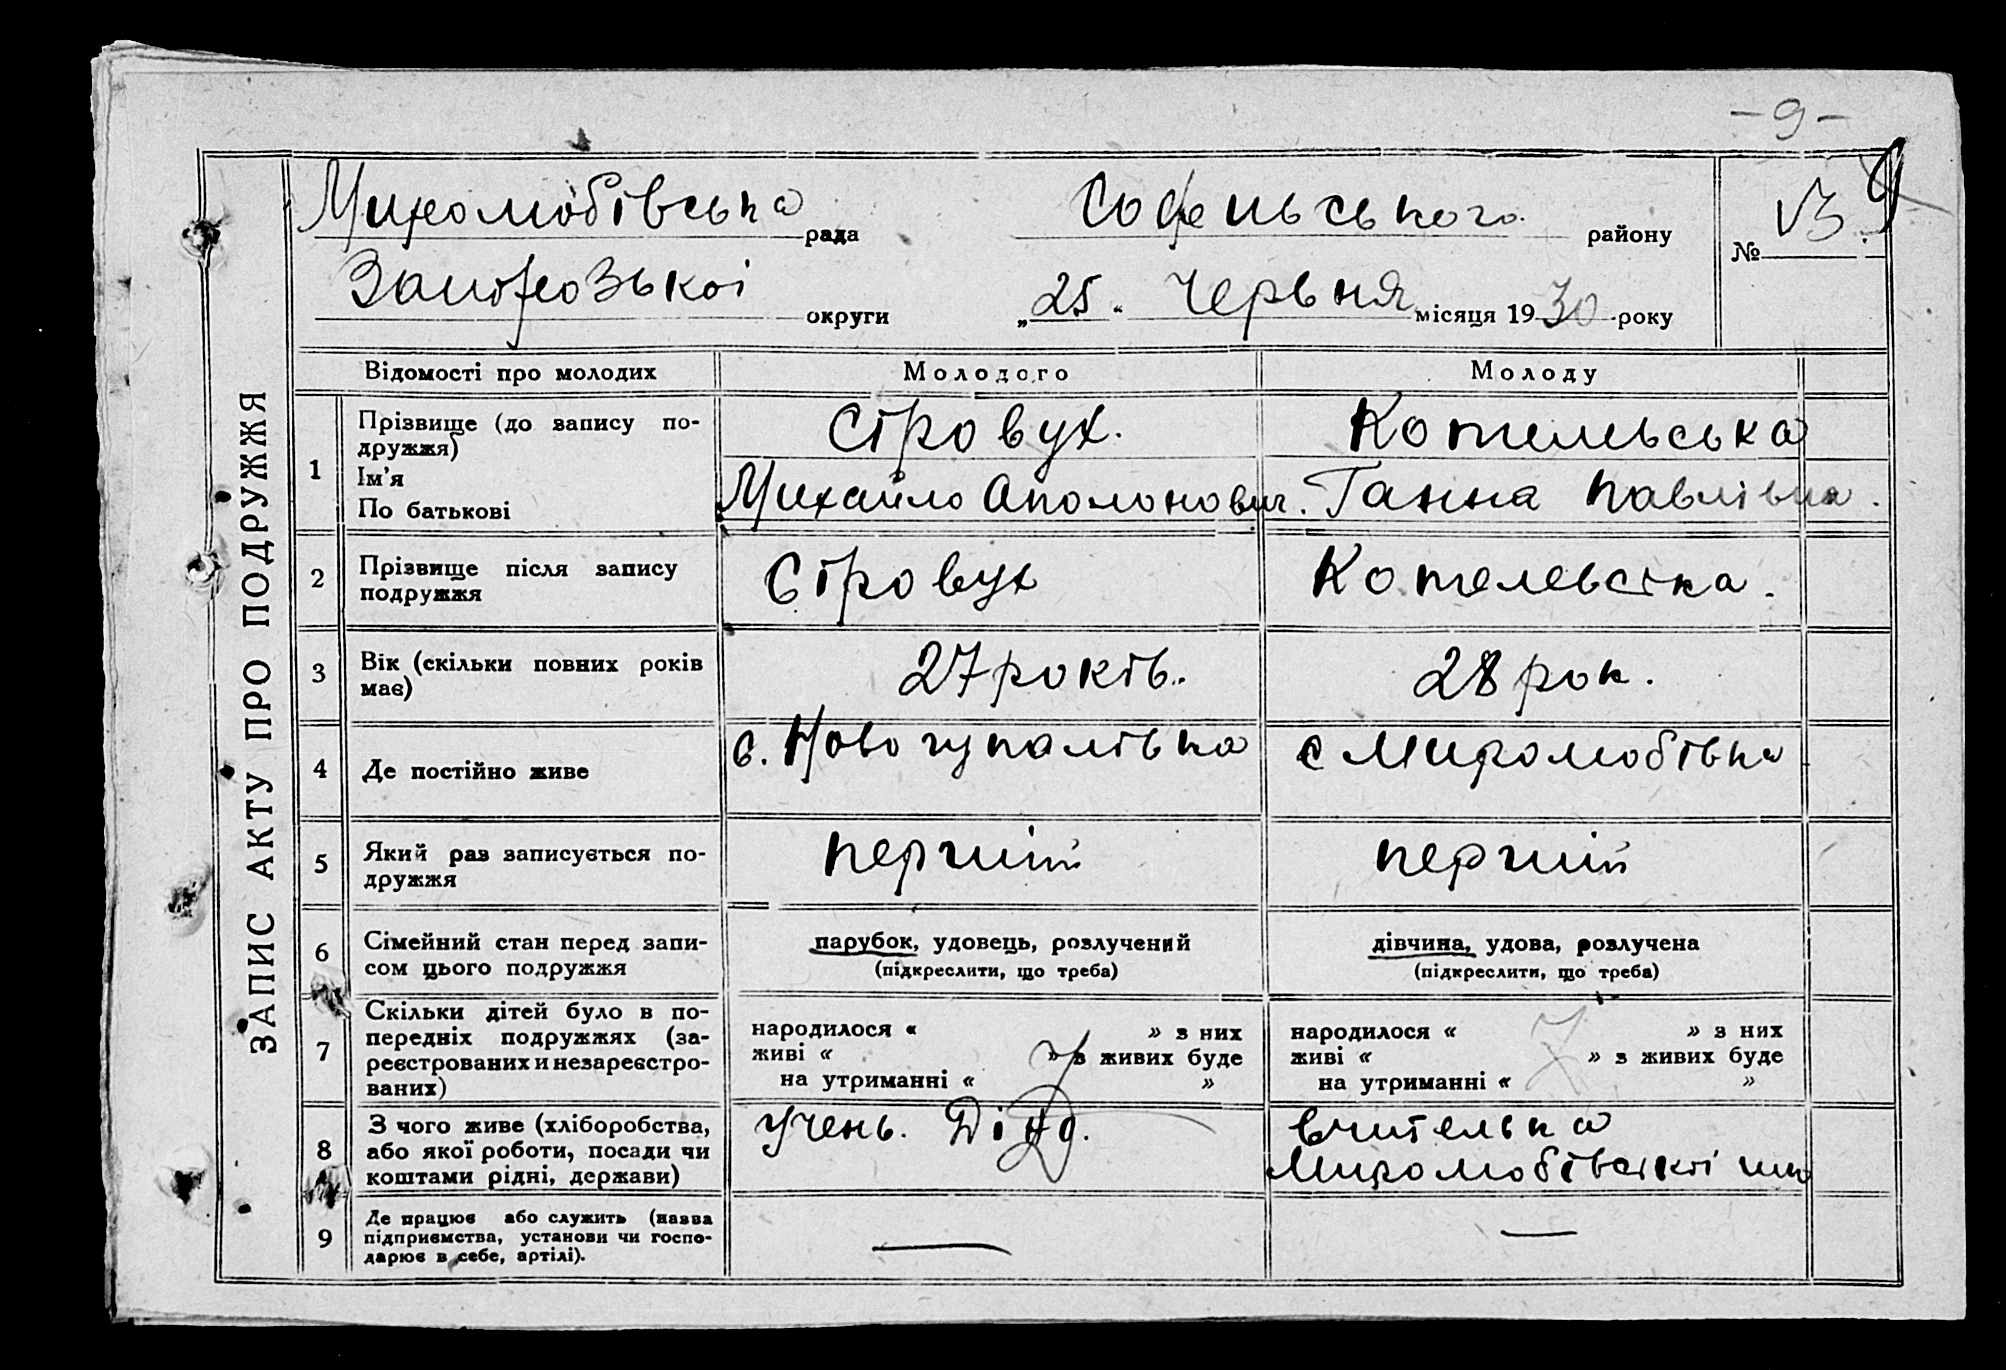 - 9 -
9
Миролюбівська рада Софієвського району № 13
Запорозької округи „25“ Червня місяця 1930 року
ЗАПИС АКТУ ПРО ПОДРУЖЖЯ
Відомості про молодих Молодого Молоду
1 Прізвище (до запису по-
дружжя) Стровух. Котелевська
Ім'я
По батькові Михайло Аполонович. Ганна Павлівна.
2 Прізвище після запису
подружжя Стровух Котелевська.
3 Вік (скільки повних років
має) 27 років. 28 рок.
4 Де постійно живе с. Ново гупалівка с Миролюбівка
5 Який раз записується по-
дружжя перший перший
6 Сімейний стан перед запи-
сом цього подружжя
парубок, удовець, розлучений дівчина, удова, розлучена
(підкреслити, що треба) (підкреслити, що треба)
7 Скільки дітей було в по-
передніх подружжях (за-
реєстрованих и незареєстро-
ваних)
народилося « » з них народилося « » з них
живі « » з живих буде живі « » з живих буде
на утриманні « » на утриманні « »
8 З чого живе (хліборобства,
або якої роботи, посади чи
коштами рідні, держави)
учень. вчителька
Миролюбівської
9 Де працює або служить (назва
підприємства, установи чи госпо-
дарює в себе, артілі). — —